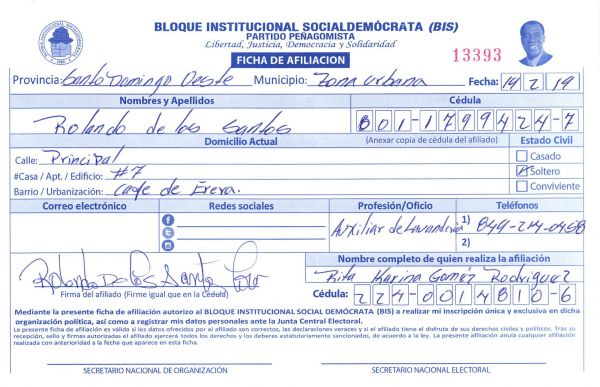 BLOQUE INSTITUCIONAL SOCIALDEMÓCRATA (BIS)
PARTIDO PEÑAGOMISTA
Libertad, Justicia, Democracia y Solidaridad
FICHA DE AFILIACION
13393
Provincia: Santo Domingo Oeste Municipio: Zona Urbana Fecha: 19/2/19
Nombres y Apellidos Cédula
Rolando de los Santos 001-1799424-7
Domicilio Actual (Anexar copia de cédula del afiliado) Estado Civil
Calle: Principal Casado
#Casa / Apt. / Edificio: #7 Soltero
Barrio / Urbanización: de Conviviente
Correo electrónico Redes sociales Profesión/Oficio Teléfonos
Auxiliar de Lavandería 1) 849-214-0458
2)
Rolando De Los Santos
Nombre completo de quien realiza la afiliación
Rita Karina Gomez Rodriguez
Firma del afiliado (Firme igual que en la Cédula) Cédula: 224-0014810-6
Mediante la presente ficha de afiliación autorizo al BLOQUE INSTITUCIONAL SOCIAL DEMÓCRATA (BIS) a realizar mi inscripción única y exclusiva en dicha
organización política, así como a registrar mis datos personales ante la Junta Central Electoral.
La presente ficha de afiliación es válida si los datos ofrecidos por el afiliado son correctos, las declaraciones veraces y si el afiliado tiene el disfrute de sus derechos civiles y políticos. Tras su
recepción, sello y firmas autorizadas el afiliado ejercerá todos los derechos y los deberes estatutariamente sancionados, de acuerdo a la ley. La presente afiliación anula cualquier afiliación
realizada con anterioridad a la fecha que aparece en esta ficha.
SECRETARIO NACIONAL DE ORGANIZACIÓN SECRETARIO NACIONAL ELECTORAL